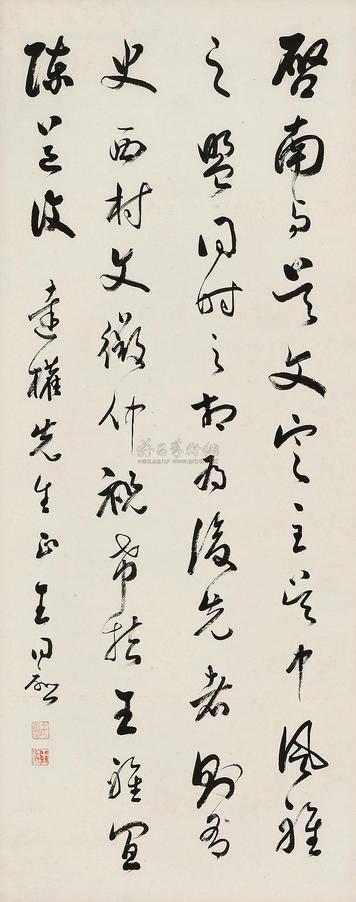 啓南与吳文定主吳中風雅
之盟同時之相為後先者則有
史西村文徵仲祝希哲王雅宜
陳道復 達權先生正 王同愈